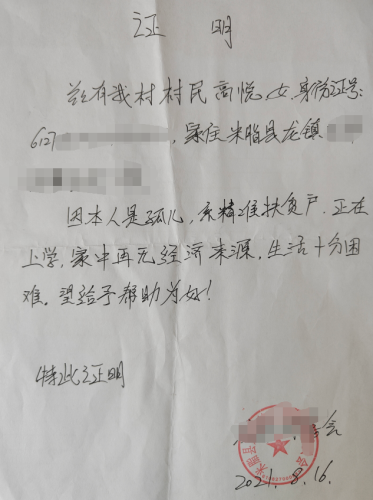 证 明
兹有我村村民高悦,女,身份证号:
6127,家住米脂县龙镇
因本人是孤儿,系精准扶贫户,正在
上学,家中再无经济来源,生活十分困
难。望给予帮助为好!
特此证明
会
2021.8.16.